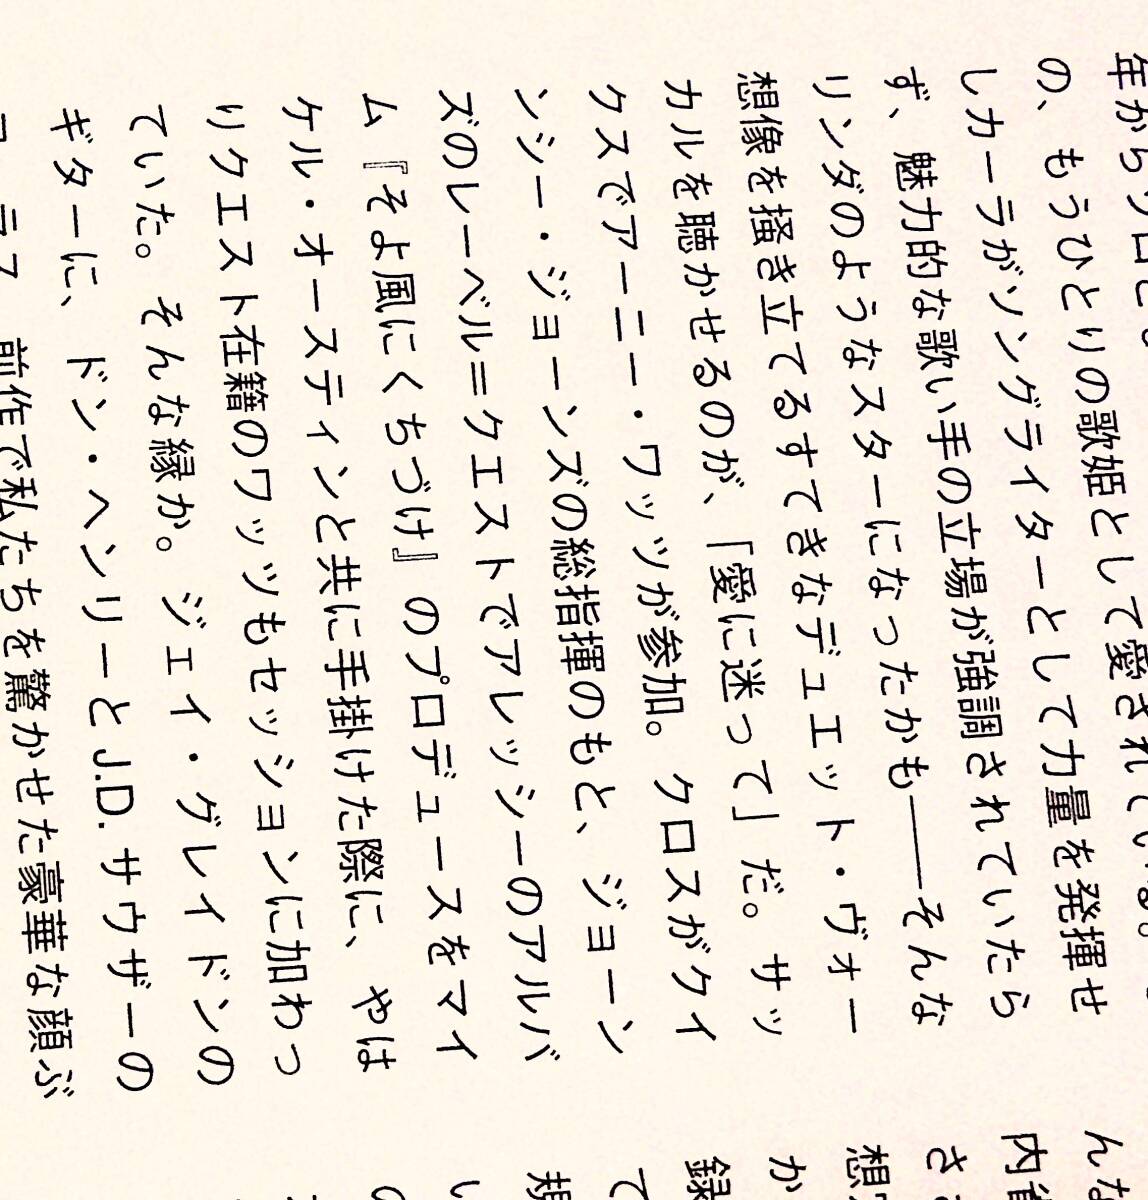 年からソロと
の、もうひとりの歌姫として愛されている。
しカーラがソングライターとして力量を発揮せ
ず、魅力的な歌い手の立場が強調されていたら
リンダのようなスターになったかも――そんな
想像を掻き立てるすてきなデュエット・ヴォー
カルを聴かせるのが、「愛に迷って」だ。サッ
クスでアーニー・ワッツが参加。クロスがクイ
ンシー・ジョーンズの総指揮のもと、ジョーン
ズのレーベル＝クエストでアレッシーのアルバ
ム『そよ風にくちづけ』のプロデュースをマイ
ケル・オースティンと共に手掛けた際に、やは
りクエスト在籍のワッツもセッションに加わっ
ていた。そんな縁か。ジェイ・グレイドンの
ギターに、ドン・ヘンリーとJ.D.サウザーの
前作で私たちを驚かせた豪華な顔ぶ
んな
内省
さ
想
か
録
て
規
い
の